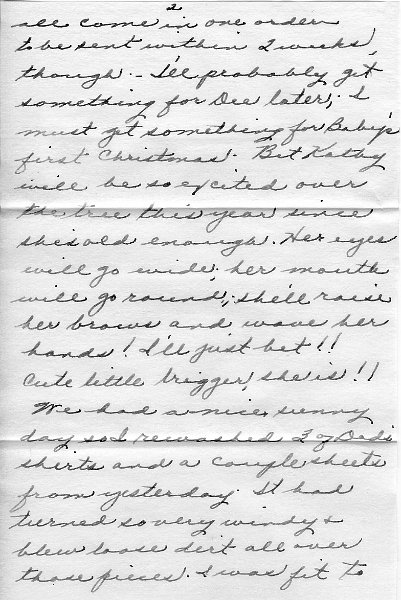 2
all come in one order
to be sent within 2 weeks,
though - I'll probably get
something for Dee later, I
must get something for Baby's
first Christmas. Bet Kathy
will be so excited over
the tree this year since
she's old enough. Her eyes
will go wide, her mouth
will go round, she'll raise
her brows and wave her
hands! I'll just bet!!
Cute little trigger, she is!!
We had a nice, sunny
day so I rewashed 2 of Dad's
shirts and a couple sheets
from yesterday. It had
turned so very windy &
blew loose dirt all over
those pieces. I was fit to